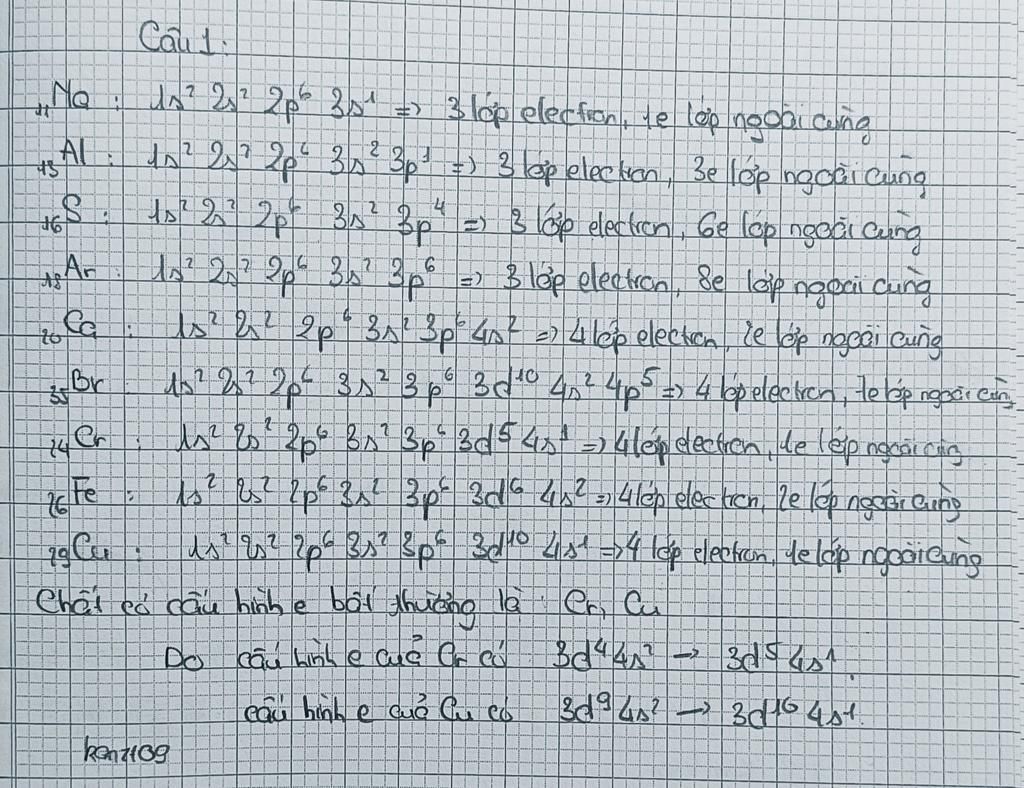 Câu 1:
₁₁Na : 1s² 2s² 2p⁶ 3s¹ => 3 lớp electron, 1e lớp ngoài cùng
₁₃Al : 1s² 2s² 2p⁶ 3s² 3p¹ => 3 lớp electron, 3e lớp ngoài cùng
₁₆S : 1s² 2s² 2p⁶ 3s² 3p⁴ => 3 lớp electron, 6e lớp ngoài cùng
₁₈Ar : 1s² 2s² 2p⁶ 3s² 3p⁶ => 3 lớp electron, 8e lớp ngoài cùng
₂₀Ca : 1s² 2s² 2p⁶ 3s² 3p⁶ 4s² => 4 lớp electron, 2e lớp ngoài cùng
₃₅Br : 1s² 2s² 2p⁶ 3s² 3p⁶ 3d¹⁰ 4s² 4p⁵ => 4 lớp electron, 7e lớp ngoài cùng
₂₄Cr : 1s² 2s² 2p⁶ 3s² 3p⁶ 3d⁵ 4s¹ => 4 lớp electron, 1e lớp ngoài cùng
₂₆Fe : 1s² 2s² 2p⁶ 3s² 3p⁶ 3d⁶ 4s² => 4 lớp electron, 2e lớp ngoài cùng
₂₉Cu : 1s² 2s² 2p⁶ 3s² 3p⁶ 3d¹⁰ 4s¹ => 4 lớp electron, 1e lớp ngoài cùng
Chất có cấu hình e bất thường là : Cr, Cu
Do cấu hình e của Cr có 3d⁴ 4s² → 3d⁵ 4s¹.
cấu hình e của Cu có 3d⁹ 4s² → 3d¹⁰ 4s¹.